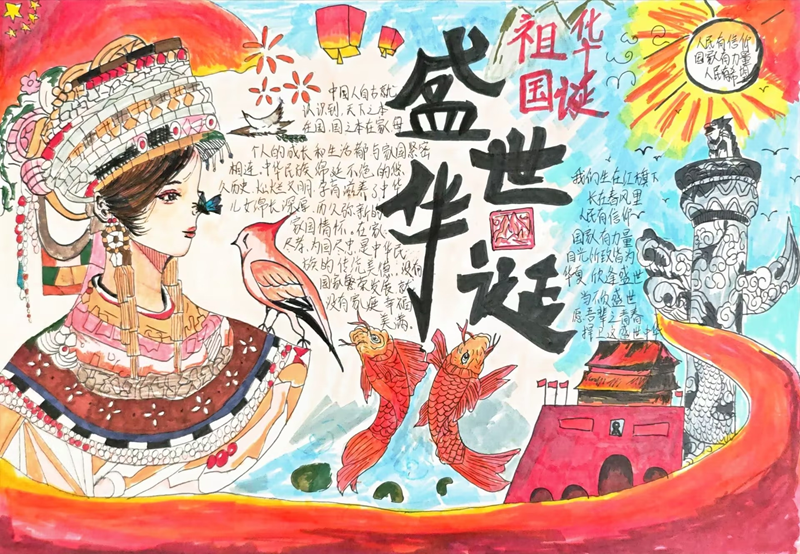 盛世华诞
祖国
华诞
人民有信仰
国家有力量
中国人自古就
认识到，天下之本
在国，国之本在家，每
个人的成长和生活都与家国紧密
相连。中华民族绵延不绝的悠
久历史、灿烂文明，孕育滋养了中华
儿女绵长深厚、而久弥新的
家国情怀。在家
尽孝、为国尽忠是中华民
族的传统美德。没有
国家繁荣发展，就
没有家庭幸福
美满。
我们生在红旗下
长在春风里
人民有信仰
国家有力量
目光所致皆为
华夏，欣逢盛世
当不负盛世
愿吾辈之青春
这盛世中华